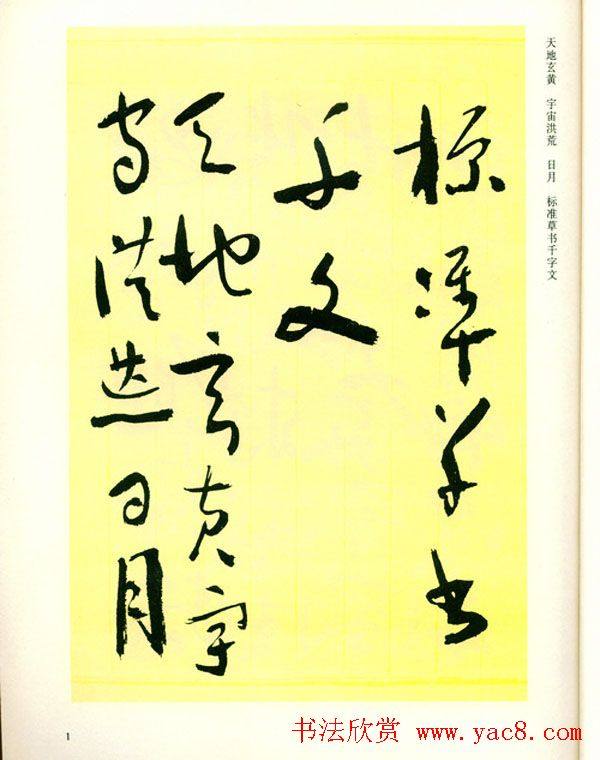 标准草书
千文
天地玄黄宇
宙洪荒日月
天地玄黄 宇宙洪荒 日月 标准草书千字文
1
书法欣赏 www.yac8.com